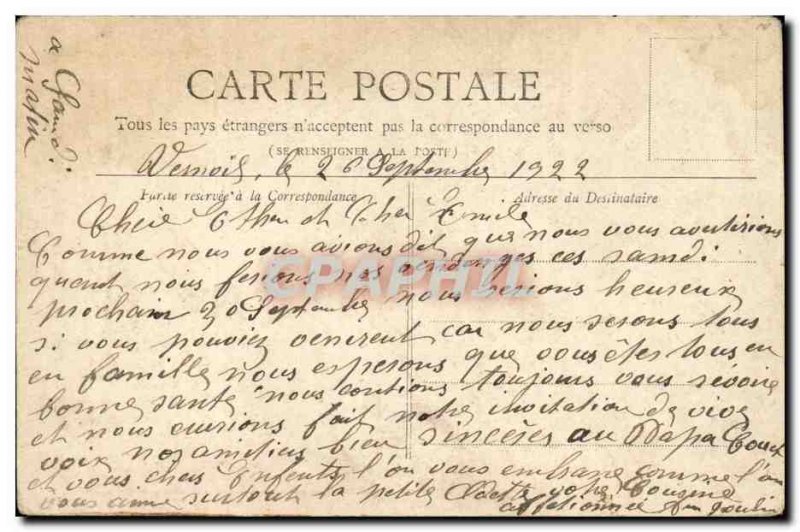 CARTE POSTALE
Tous les pays étrangers n'acceptent pas la correspondance au verso
(SE RENSEIGNER A LA POSTE)
le 26 Septembre 1922
Partie reservée à la Correspondance
Adresse du Destinataire
et Cher Emile
Comme nous vous avions dit que nous vous avertirions
quant nous ferions nos vendenges ces samdi
prochain 30 Septembre nous serions heureux
si vous pouviez venir car nous serons tous
en famille nous esperons que vous êtes tous en
bonne santé nous toujours vous revoire
et nous aurions fait notre invitation de vive
voix nos bien sincères au Papa
et vous chers Enfants l'on vous embrasse comme l'on
vous aime surtout la petite Odette votre Cousine
affectionnée
a Samdi
matin
CPAPHIL